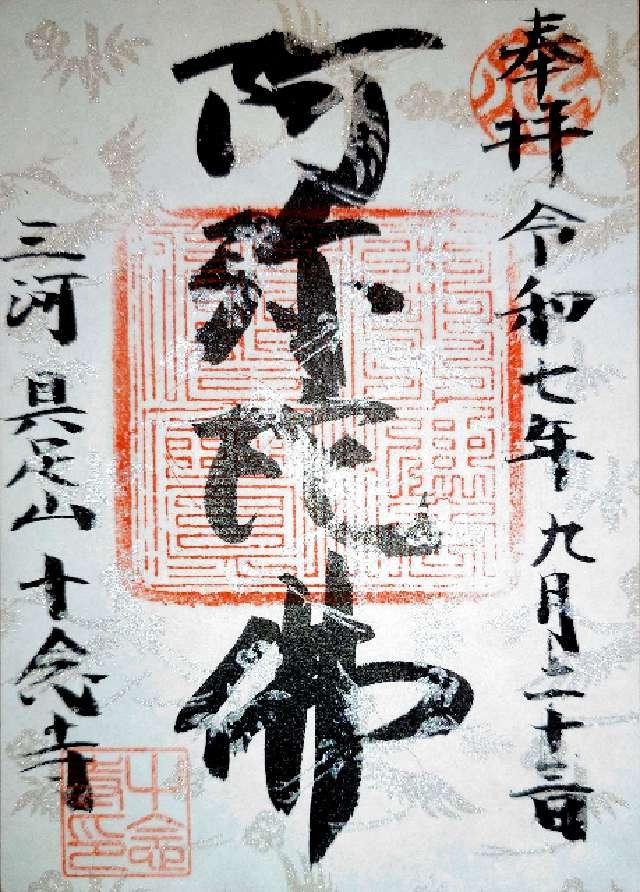 奉拝 令和七年九月二十三日
阿弥陀佛
三河 具足山 十念寺
十念寺印